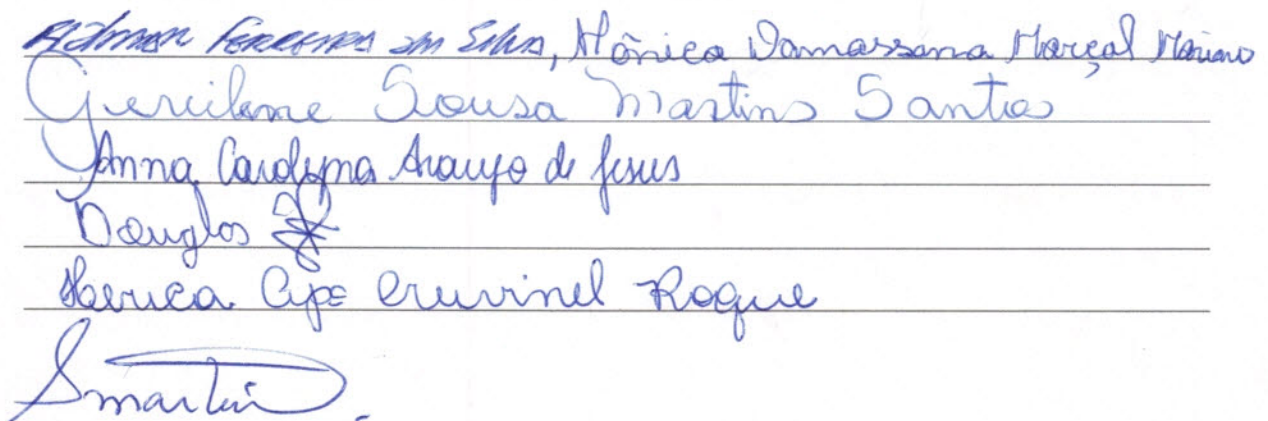 Ferreira da Silva, Mônica Damassena Marçal Mariano
Gercilene Sousa Martins Santos
Anna Carolyna Araujo de Jesus
Douglas
Herica Cruvinel Roque
Smartins